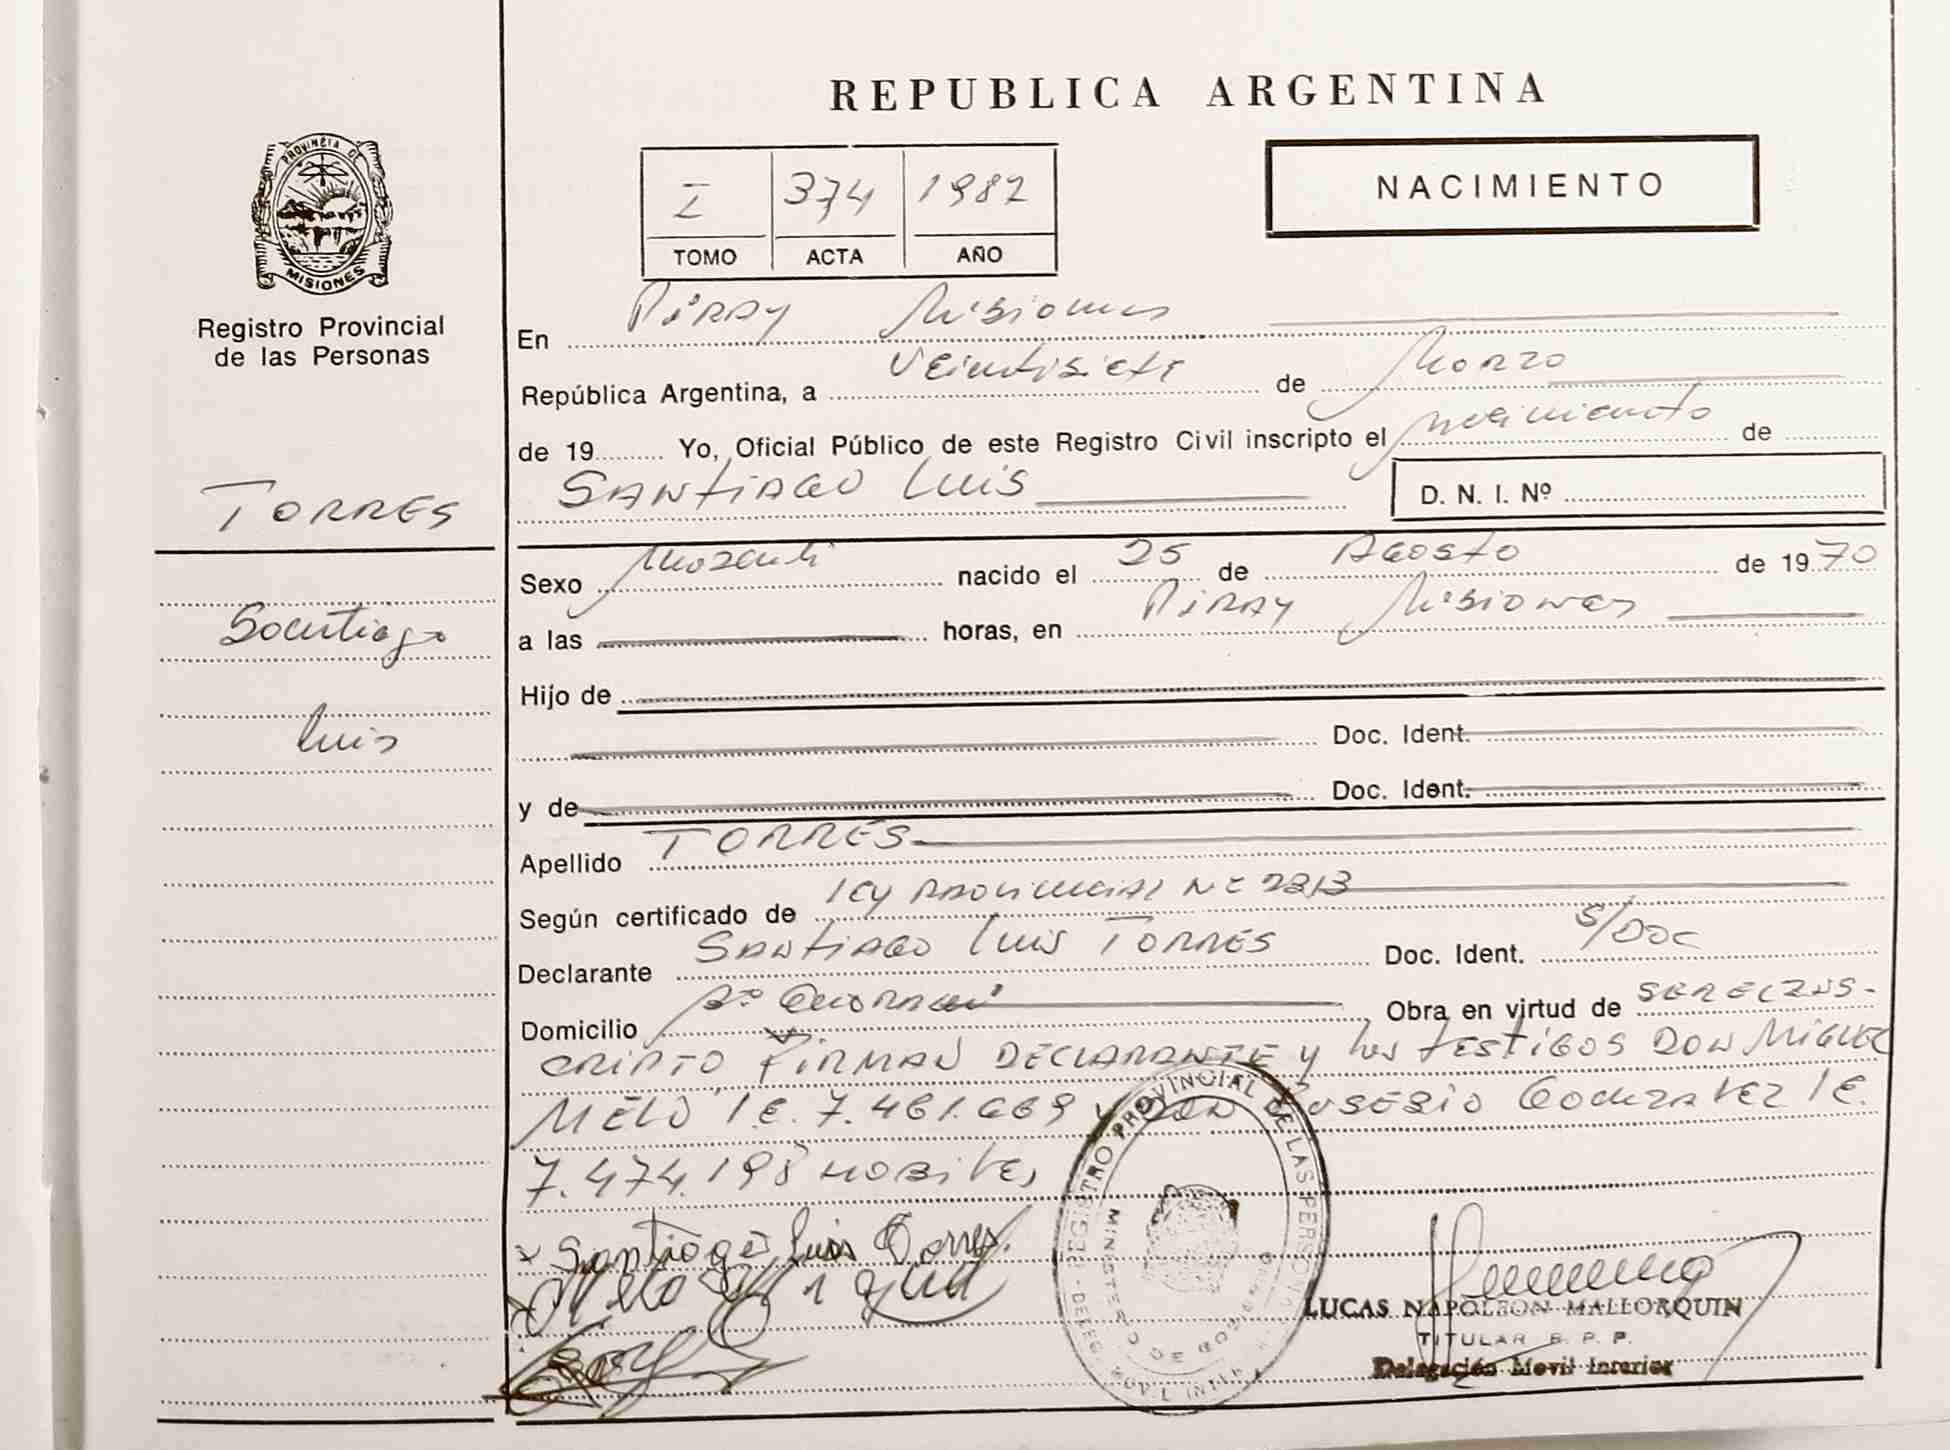 REPUBLICA ARGENTINA
PROVINCIA DE
MISIONES
Registro Provincial
de las Personas
I 374 1987
TOMO ACTA AÑO
NACIMIENTO
En Piray Misiones
República Argentina, a Veintisiete de Marzo
de 19 Yo, Oficial Público de este Registro Civil inscripto el nacimiento de
SANTIAGO LUIS
D. N. I. Nº
TORRES
Santiago
Luis
Sexo nacido el 25 de Agosto de 1970
a las horas, en Piray Misiones
Hijo de
Doc. Ident.
y de Doc. Ident.
Apellido TORRES
Según certificado de Ley Provincial Nº 2313
Declarante SANTIAGO LUIS TORRES Doc. Ident. S/DOC
Domicilio Obra en virtud de SERECINS-
CRIPTO FIRMAN DECLARANTE y los TESTIGOS DON MIGUEL
MELO I.E. 7.461.669 y DON EUSEBIO GONZALEZ I.E.
7.474.198
Santiago Luis Torres
Melo Miguel
REGISTRO PROVINCIAL DE LAS PERSONAS
MINISTERIO DE GOBIERNO
LUCAS NAPOLEON MALLORQUIN
TITULAR R. P. P.
Delegación Movil Interior